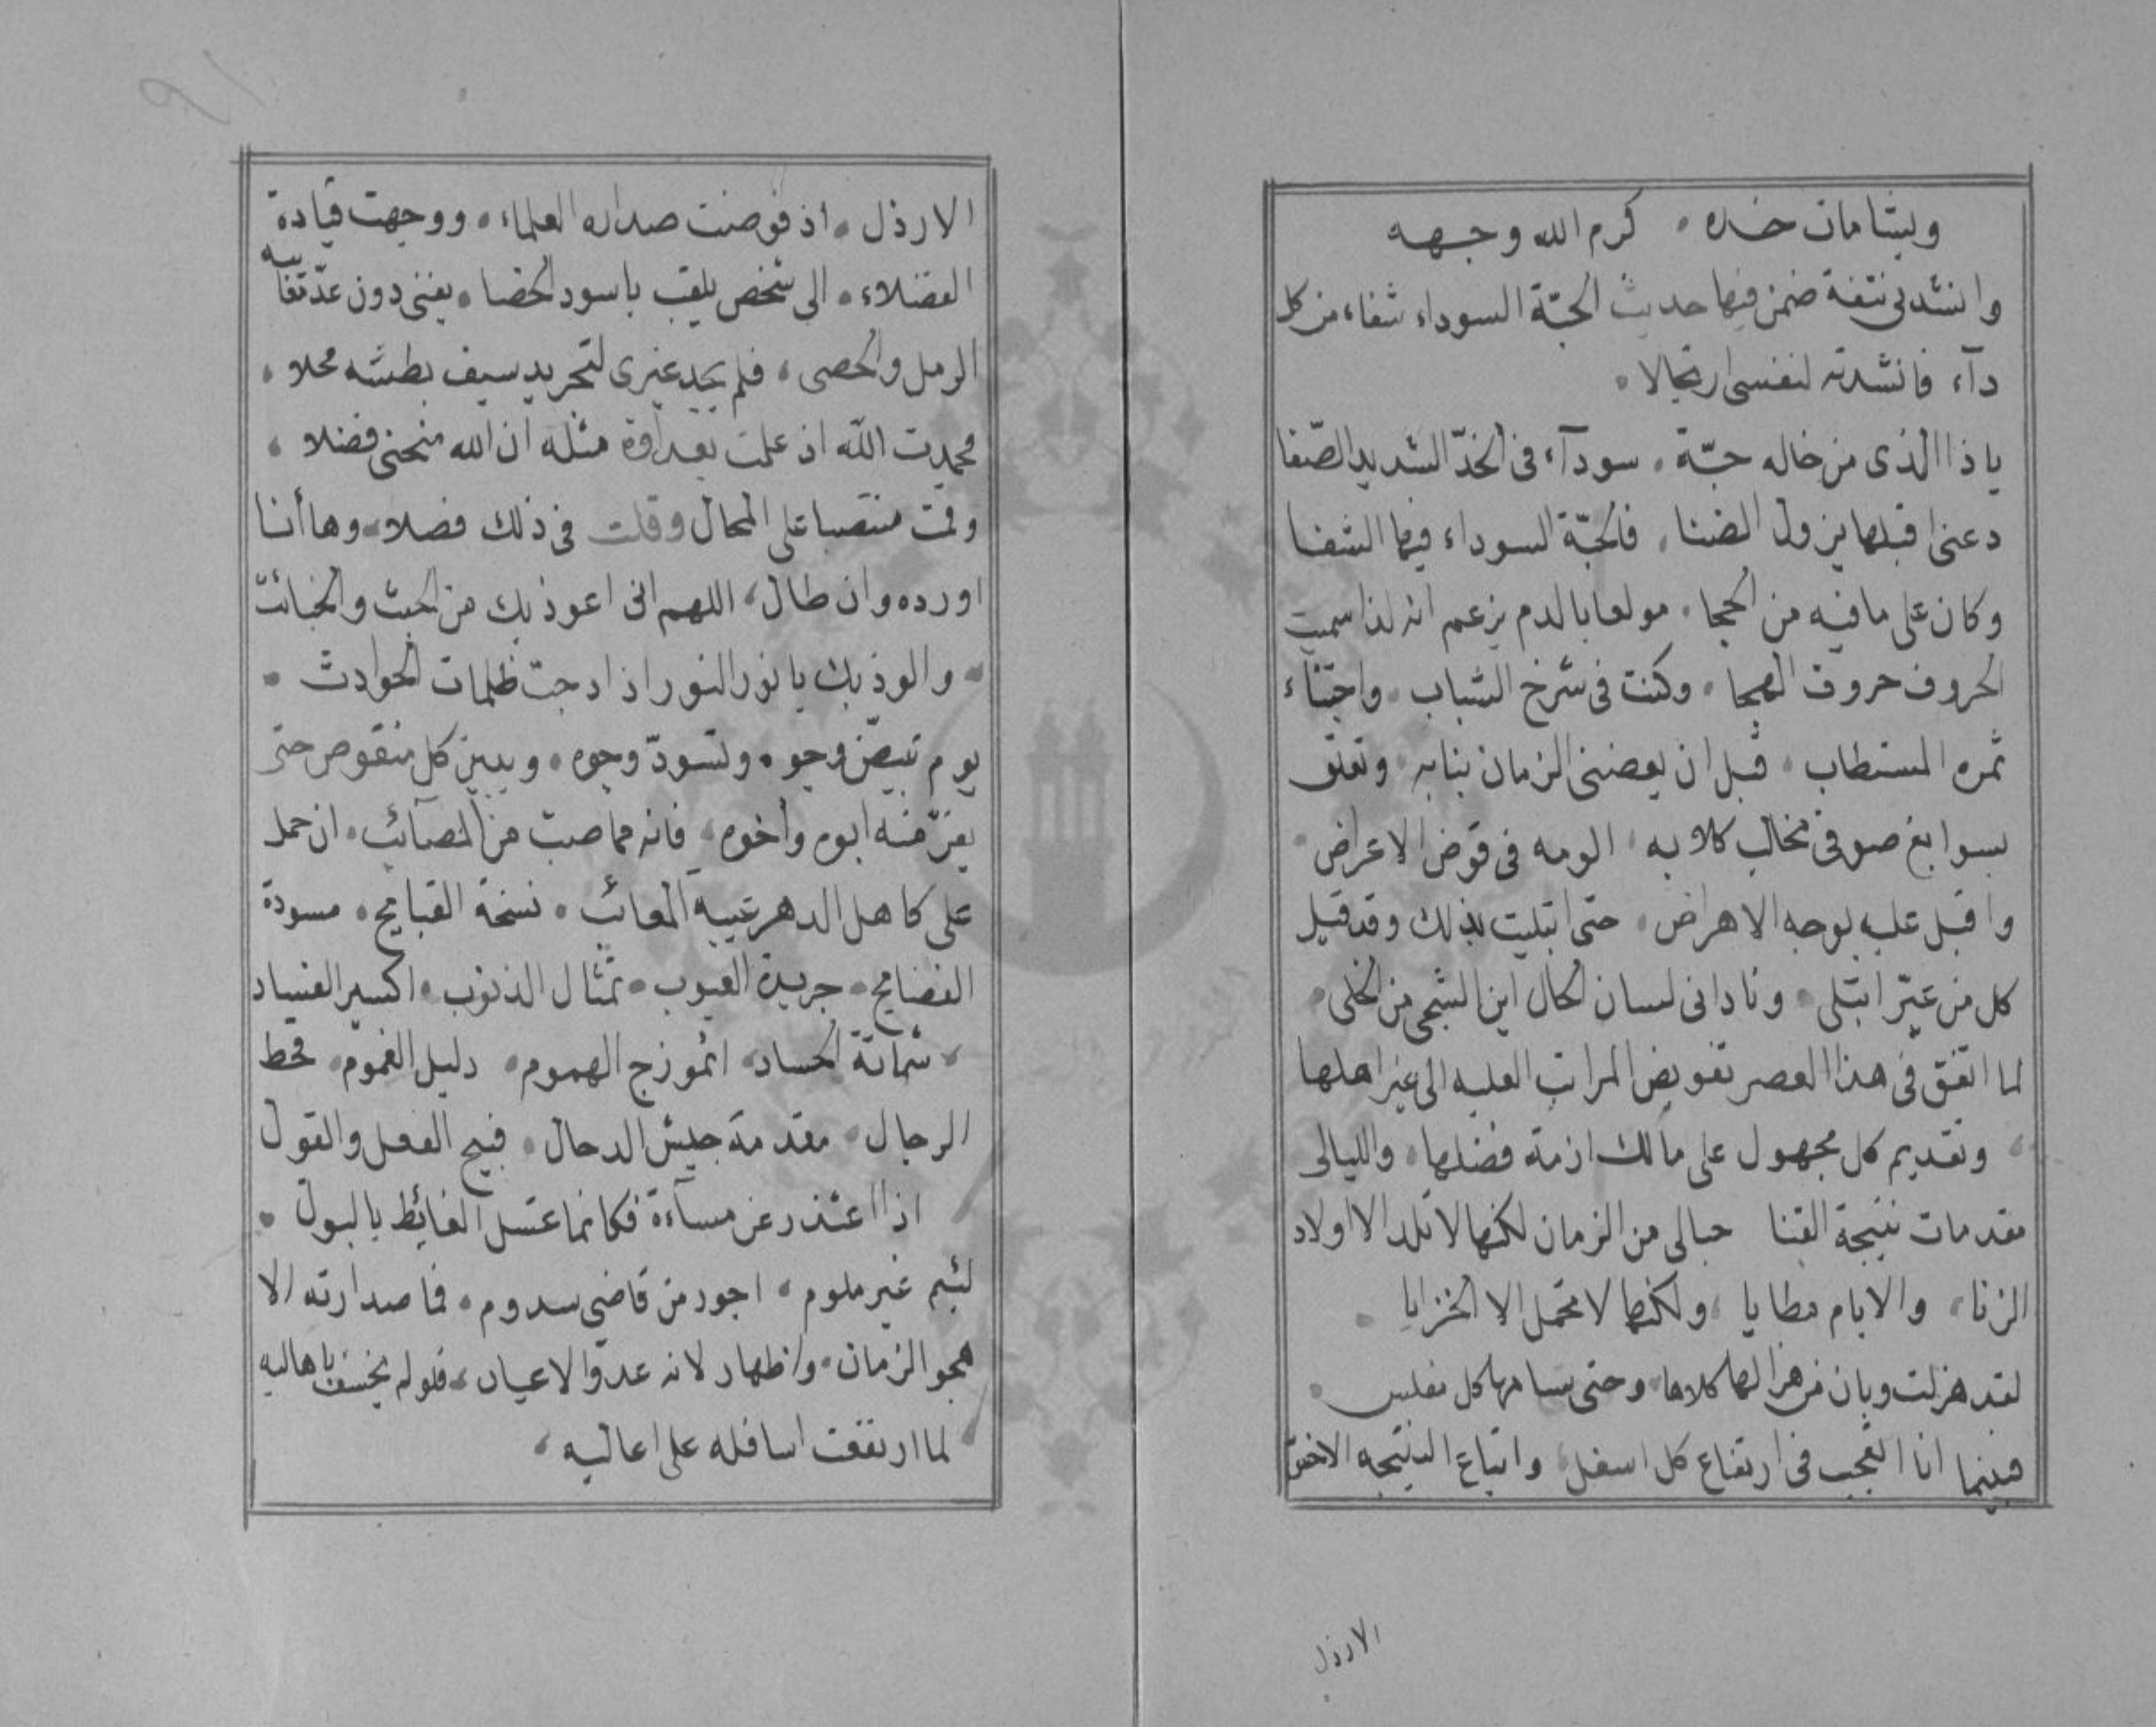 وبشامات خده • كرم الله وجهه
وانشدنى نتفة ضمن فيها حديث الحبّة السوداء شفاء من كل
دآء فانشدته لنفسى ارتجالا •
يا ذا الذى من خاله حبّة • سودآء فى الخدّ الشديد الصّفا
دعنى اقبلها يزول الضنا • فالحبّة السوداء فيها الشفا
وكان على ما فيه من الحجا • مولعا بالدم يزعم انه لذا سميت
الحروف حروف الهجا • وكنت فى شرخ الشباب • واجتناء
ثمره المستطاب • قبل ان يعضنى الزمان بنابه • وتعلق
بسوابغ صوفى مخالب كلابه • الومه فى قرض الاعراض •
واقبل عليه بوجه الاعراض • حتى ابتليت بذلك وقد قيل
كل من عيّر ابتلى • ونادانى لسان الحال اين الشجى من الخلى •
لما اتفق فى هذا العصر تفويض المراتب العليه الى غير اهلها
• وتقديم كل مجهول على مالك ازمة فضلها • والليالى
مقدمات نتيجة الفنا حبالى من الزمان لكنها لا تلد الا اولاد
الزنا • والايام مطايا • ولكنها لا تحمل الا الخزايا •
لقد هزلت وبان من هزالها كلاها • وحتى سامها كل مفلس •
فبينما انا اتعجب فى ارتفاع كل اسفل • واتباع النتيجه الاخسّ
الارذل
الارذل • اذ فوضت صداره العلماء • ووجهت قيادة
الفضلاء • الى شخص يلقب باسود الخصا • يفنى دون عدّ نقائصه
الرمل والحصى • فلم يجد غيرى لتجريد سيف بطشه محلا •
فحمدت الله اذ علمت بعداوة مثله ان الله منحنى فضلا •
وقمت منتصبا على الحال وقلت فى ذلك فصلا • وها أنا
اورده وان طال • اللهم انى اعوذ بك من الخبث والخبائث
• والوذ بك يا نور النور اذا دجت ظلمات الحوادث •
يوم تبيضّ وجوه • وتسودّ وجوه • ويبين كل منقوص حتى
يفرّ منه ابوه وأخوه • فانه مما صبّ من المصآئب • ان حمل
على كاهل الدهر عيبة المعائب • نسخة القبايح • مسودة
الفضايح • جريدة العيوب • تمثال الذنوب • اكسير الفساد
• شماتة الحساد • انموزج الهموم • دليل الغموم • قحط
الرجال • مقدمة جيش الدجال • قبيح الفعل والقول
• اذا اعتذر عن مسآءة فكانما غسل الغائط بالبول •
لئيم غير ملوم • اجور من قاضى سدوم • فما صدارته الا
هجو الزمان • واظهار لانه عدوّ الاعيان • فلو لم يخسف باهاليه
• لما ارتفعت اسافله على اعاليه •